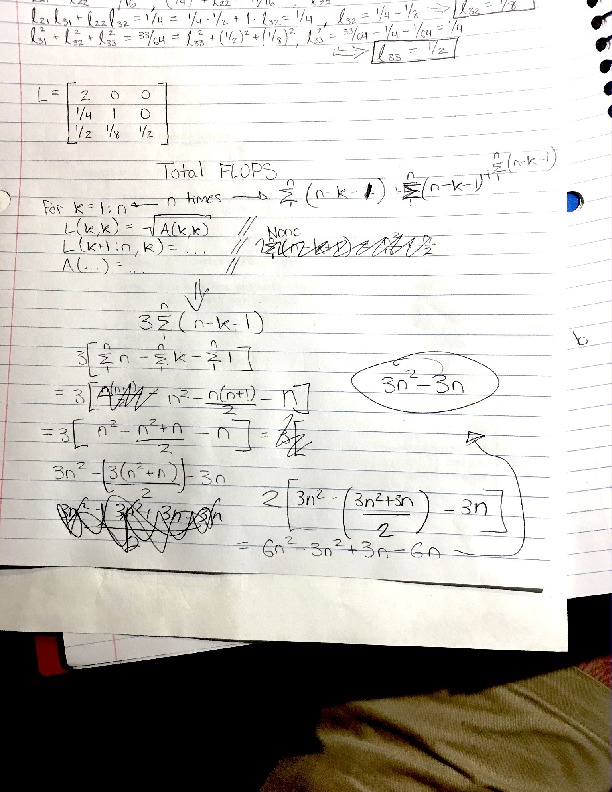 l21 l31 + l22 l32 = 1/4 = 1/4 · 1/2 + 1 · l32 = 1/4 , l32 = 1/4 - 1/8 → l32 = 1/8
l31² + l32² + l33² = 33/64 = l33² + (1/2)² + (1/8)², l33² = 33/64 - 1/4 - 1/64 = 1/4
⇒ l33 = 1/2
L = [ 2 0 0
1/4 1 0
1/2 1/8 1/2 ]
Total FLOPS
for k = 1:n ← n times → Σ₁ⁿ (n-k-1) + Σ₁ⁿ (n-k-1) + Σ₁ⁿ (n-k-1)
L(k,k) = √A(k,k) // None
L(k+1:n, k) = ... //
A(...) = ... //
⇓
3 Σ₁ⁿ (n-k-1)
3[Σ₁ⁿ n - Σ₁ⁿ k - Σ₁ⁿ 1]
3n² - 3n
= 3[ n² - n(n+1)/2 - n]
= 3[ n² - n²+n/2 - n ] =
3n² - (3(n²+n)/2) - 3n
2 [ 3n² - (3n²+3n/2) - 3n ]
= 6n² - 3n² + 3n - 6n